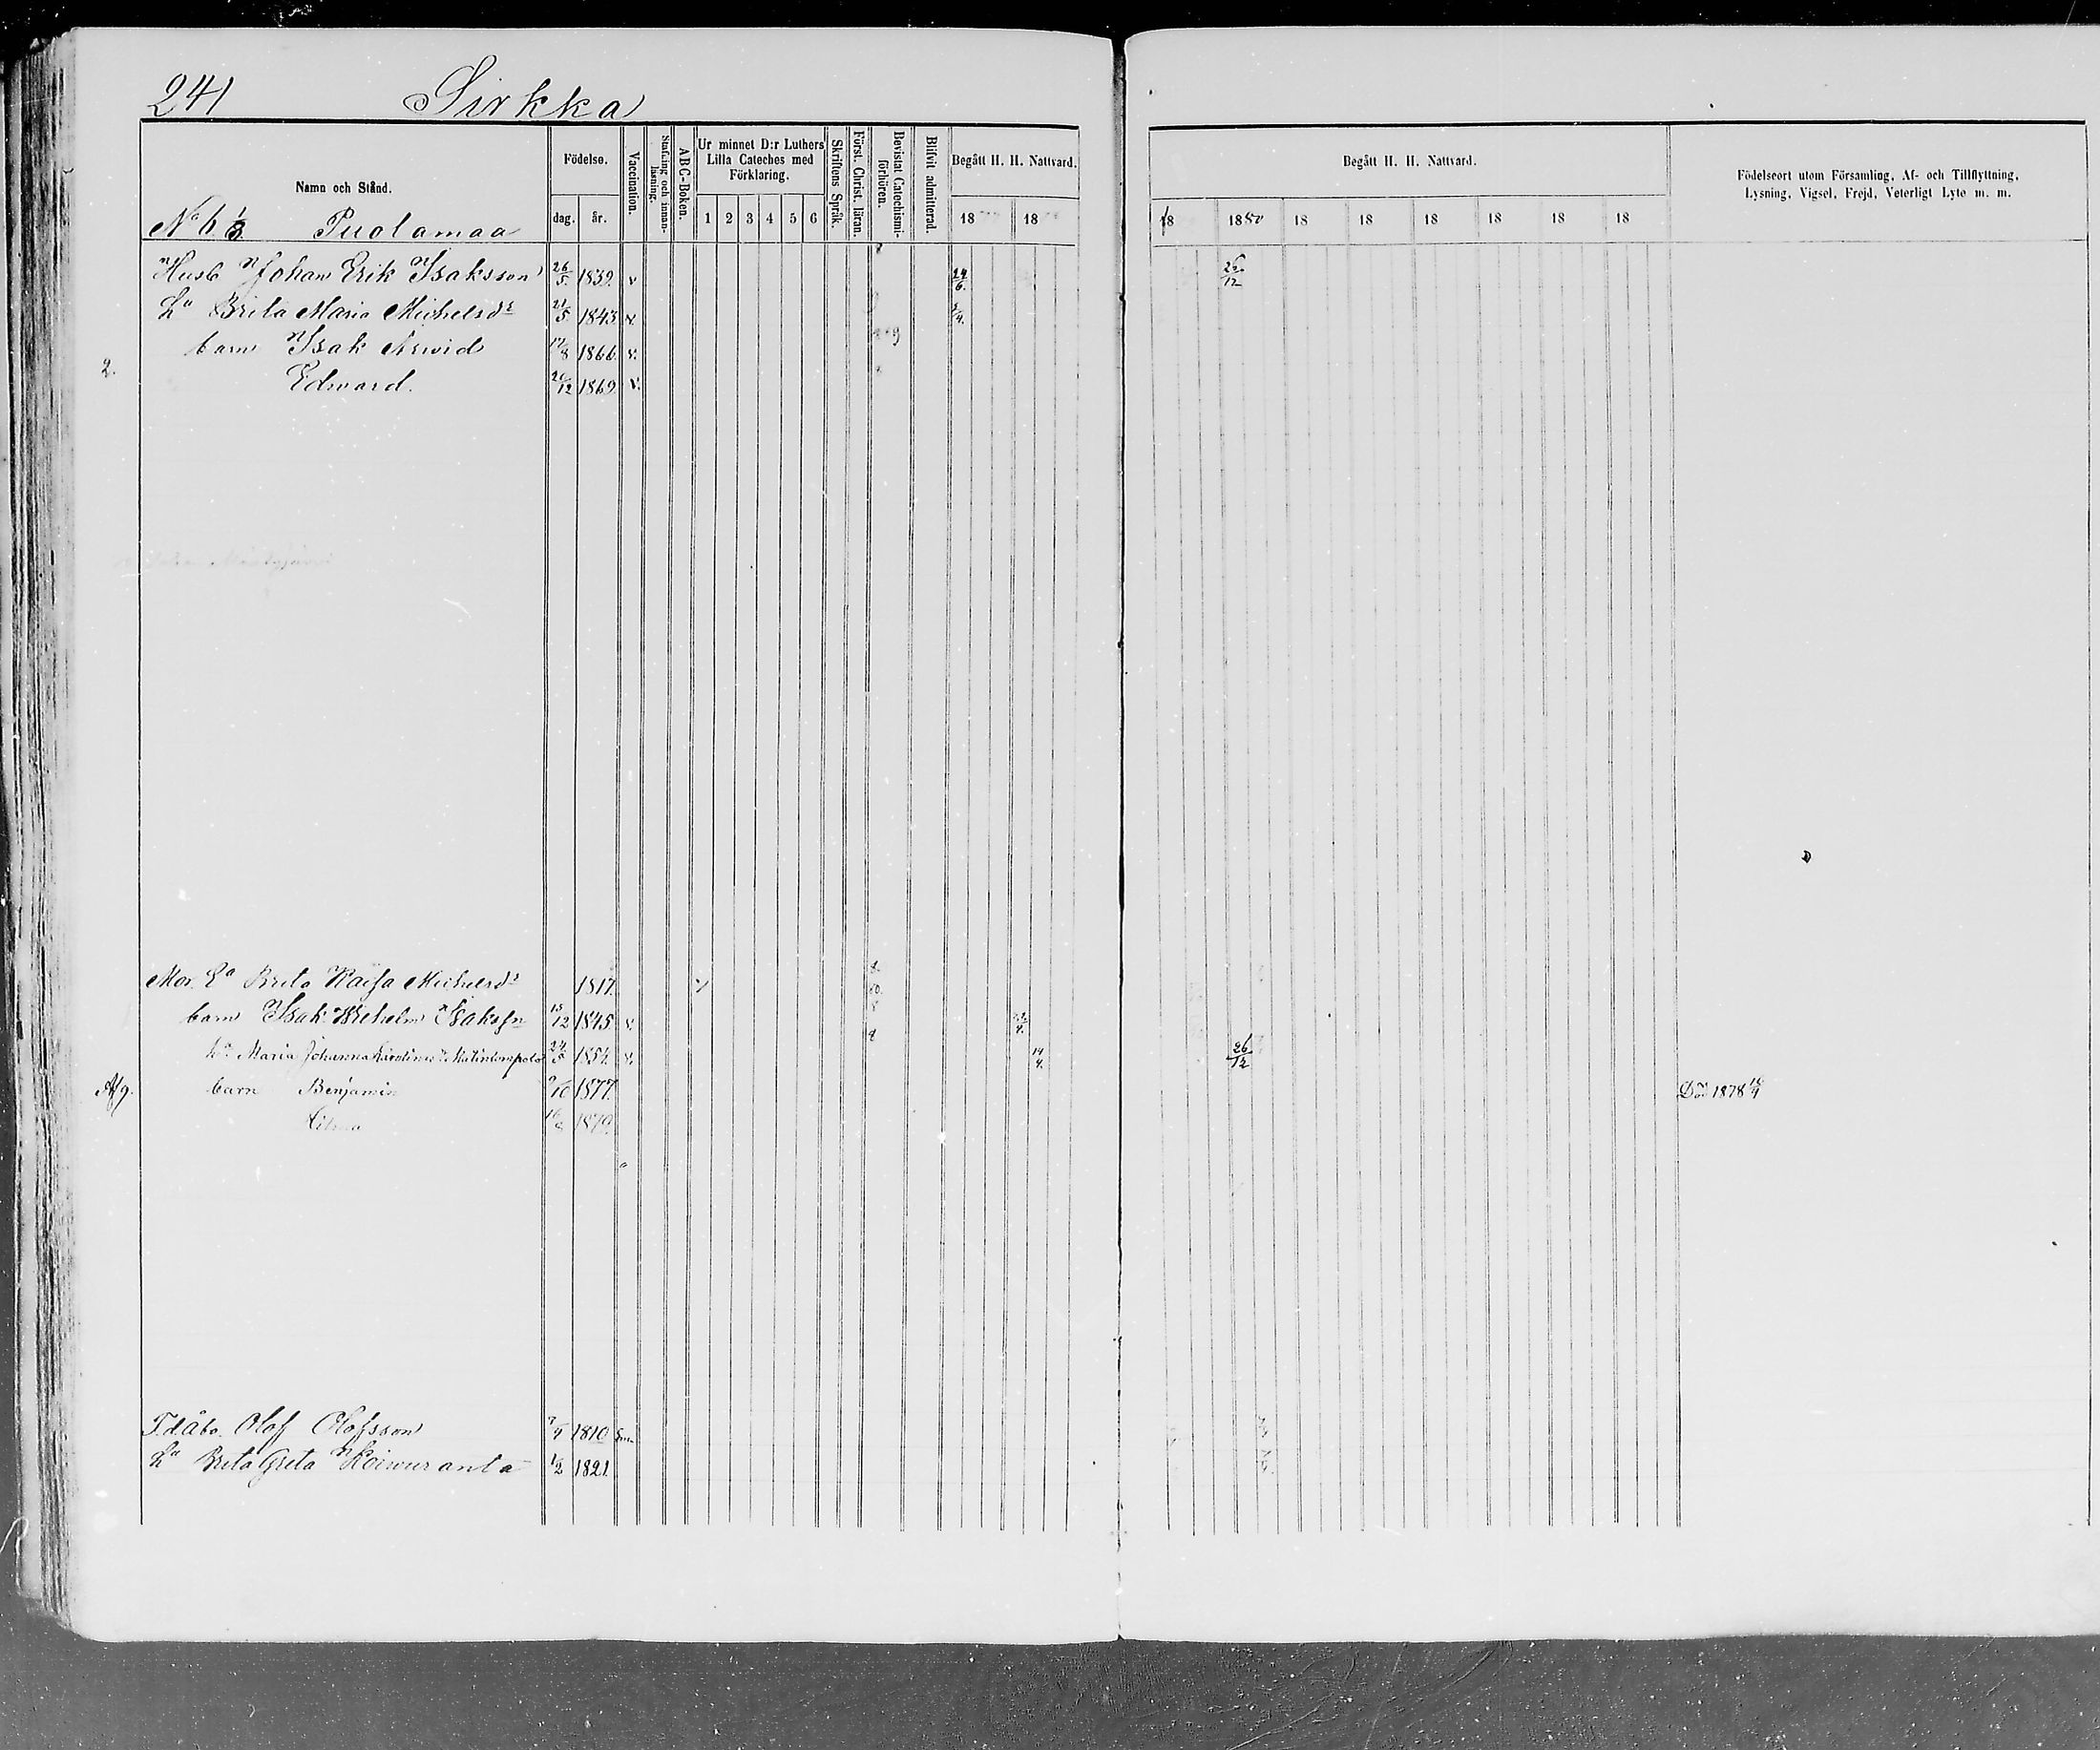 241 Sirkka
Namn och Stånd. Födelse. Vaccination. Stafning och innan-läsning. ABC-Boken. Ur minnet D:r Luthers Lilla Cateches med Förklaring. Skriftens Språk. Först. Christ. läran. Bevistat Catechismi-förhören. Blifvit admitterad. Begått H. H. Nattvard. Begått H. H. Nattvard. Födelseort utom Församling, Af- och Tillflyttning, Lysning, Vigsel, Frejd, Veterligt Lyte m. m.
dag. år. 1 2 3 4 5 6 18 18 18 1880 18 18 18 18 18 18
No 6 1/3 Puolamaa
Husb Johan Erik Isaksson 26/5. 1839. v 24/6. 26/12
Ha Brita Maria Michelsdr 21/5. 1843 v.
barn Isak Arwid 17/8 1866. v.
2. Edward. 20/12 1869. v.
Mor Ea Brita Kaisa Michelsdr 1817.
barn Isak Wilhelm Isaksn 15/12 1845 v.
hu Maria Johanna 24/5 1854. v. 14/4. 26/12
Afg. barn Benjamin 9/10 1877. Död 1878
1879.
T.d åbo. Olof Olofsson 7/4 1810
Ha Brita Greta Koiwuranta 1/2 1821.